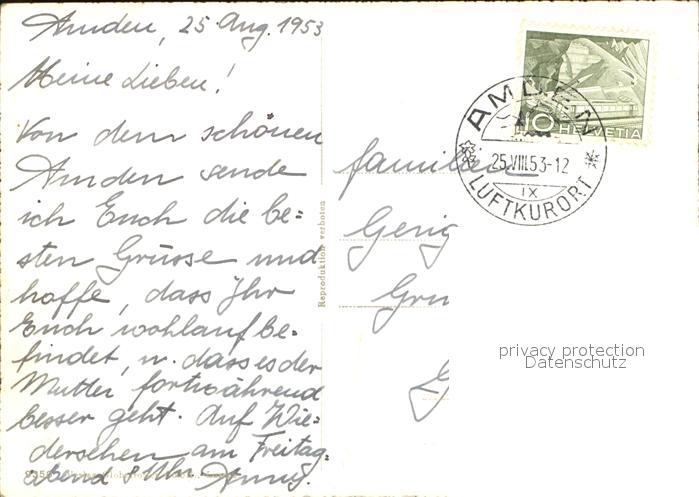 Amden, 25 Aug. 1953
Meine Lieben!
Von dem schönen
Amden sende
ich Euch die be-
sten Grüsse und
hoffe, dass Ihr
Euch wohlauf be-
findet, u. dass es der
Mutter fortwährend
besser geht. Auf Wie-
dersehen am Freitag-
abend 8 Uhr. Anny.
Reproduktion verboten
familien
Gerig
Gru
10 HELVETIA
AMDEN
25.VIII.53-12
IX
LUFTKURORT
privacy protection
Datenschutz